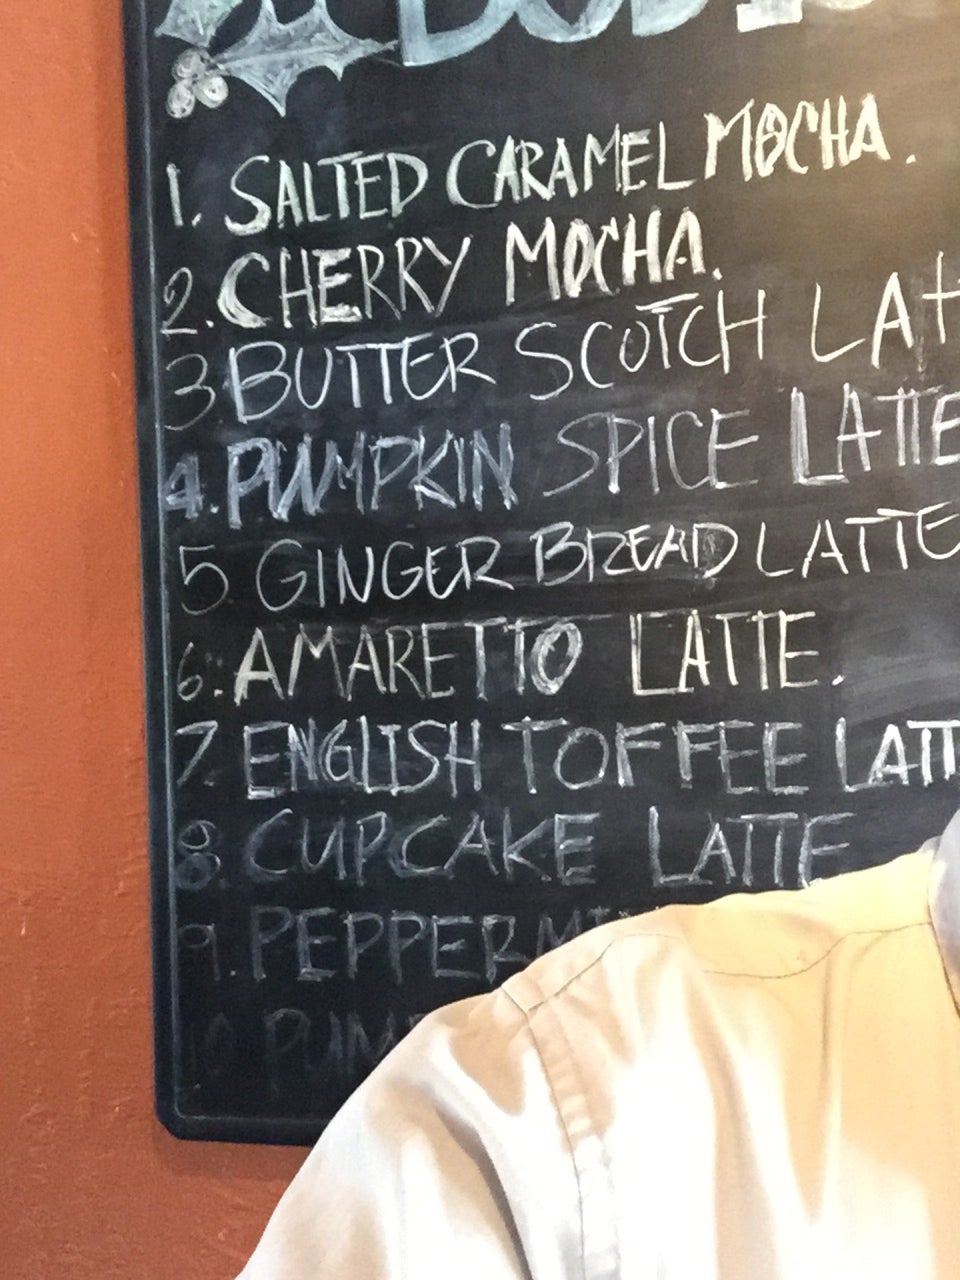 1. SALTED CARAMEL MOCHA.
2. CHERRY MOCHA.
3 BUTTER SCOTCH LATT
4. PUMPKIN SPICE LATTE
5 GINGER BREAD LATTE
6. AMARETTO LATTE.
7. ENGLISH TOFFEE LATT
8. CUPCAKE LATTE
9. PEPPERMI
10 PUM